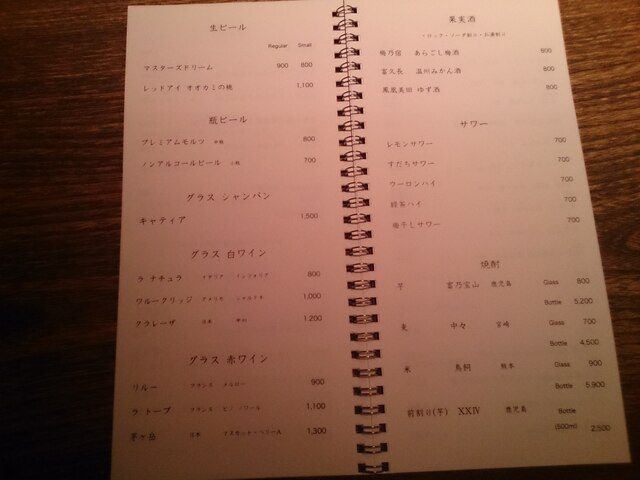 生ビール
Regular Small
マスターズドリーム 900 800
レッドアイ オオカミの桃 1,100
瓶ビール
プレミアムモルツ 中瓶 800
ノンアルコールビール 小瓶 700
グラス シャンパン
キャティア 1,500
グラス 白ワイン
ラ ナチュラ イタリア インツォリア 800
ワルークリッジ アメリカ シャルドネ 1,000
クラレーザ 日本 甲州 1,200
グラス 赤ワイン
リルー フランス メルロー 900
ラ トープ フランス ピノ ノワール 1,100
茅ヶ岳 日本 マスカット・ベリーA 1,300
果実酒
・ロック・ソーダ割り・お湯割り
梅乃宿 あらごし梅酒 800
富久長 温州みかん酒 800
鳳凰美田 ゆず酒 800
サワー
レモンサワー 700
すだちサワー 700
ウーロンハイ 700
緑茶ハイ 700
梅干しサワー 700
焼酎
芋 富乃宝山 鹿児島 Glass 800
Bottle 5,200
麦 中々 宮崎 Glass 700
Bottle 4,500
米 鳥飼 熊本 Glass 900
Bottle 5,900
前割り(芋) XXIV 鹿児島 Bottle
(500ml) 2,500